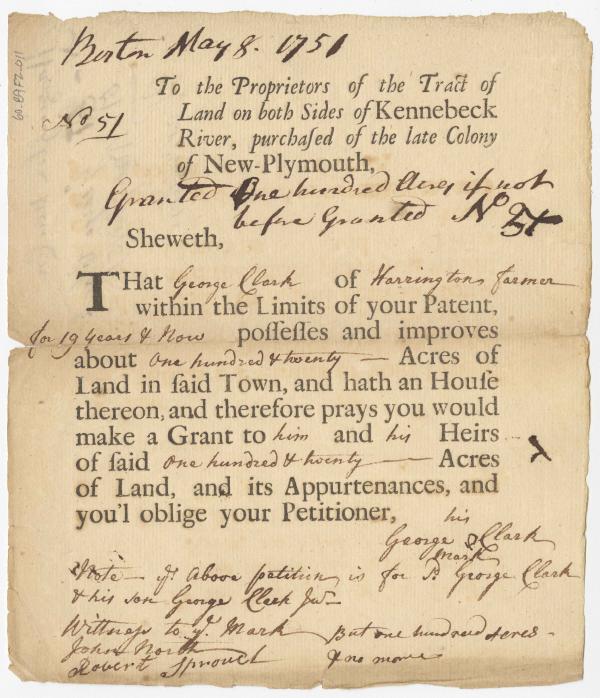 Boston May 8. 1751
60-BAFZ-011
To the Proprietors of the Tract of
No 51
Land on both Sides of Kennebeck
River, purchaſed of the late Colony
of New-Plymouth,
Granted One hundred Acres if not
before Granted No
Sheweth,
THat George Clark of Harrington farmer
within the Limits of your Patent,
for 19 Years & Now poſſeſſes and improves
about One hundred & twenty — Acres of
Land in ſaid Town, and hath an Houſe
thereon, and therefore prays you would
make a Grant to him and his Heirs
of ſaid One hundred & twenty — Acres
of Land, and its Appurtenances, and
you'l oblige your Petitioner,
his
George Clark
mark
Note – ye Above petition is for George Clark
& his son George Clark Junr
Wittness to ye Mark
John North
Robert Sproul
But one hundred Acres
& no more